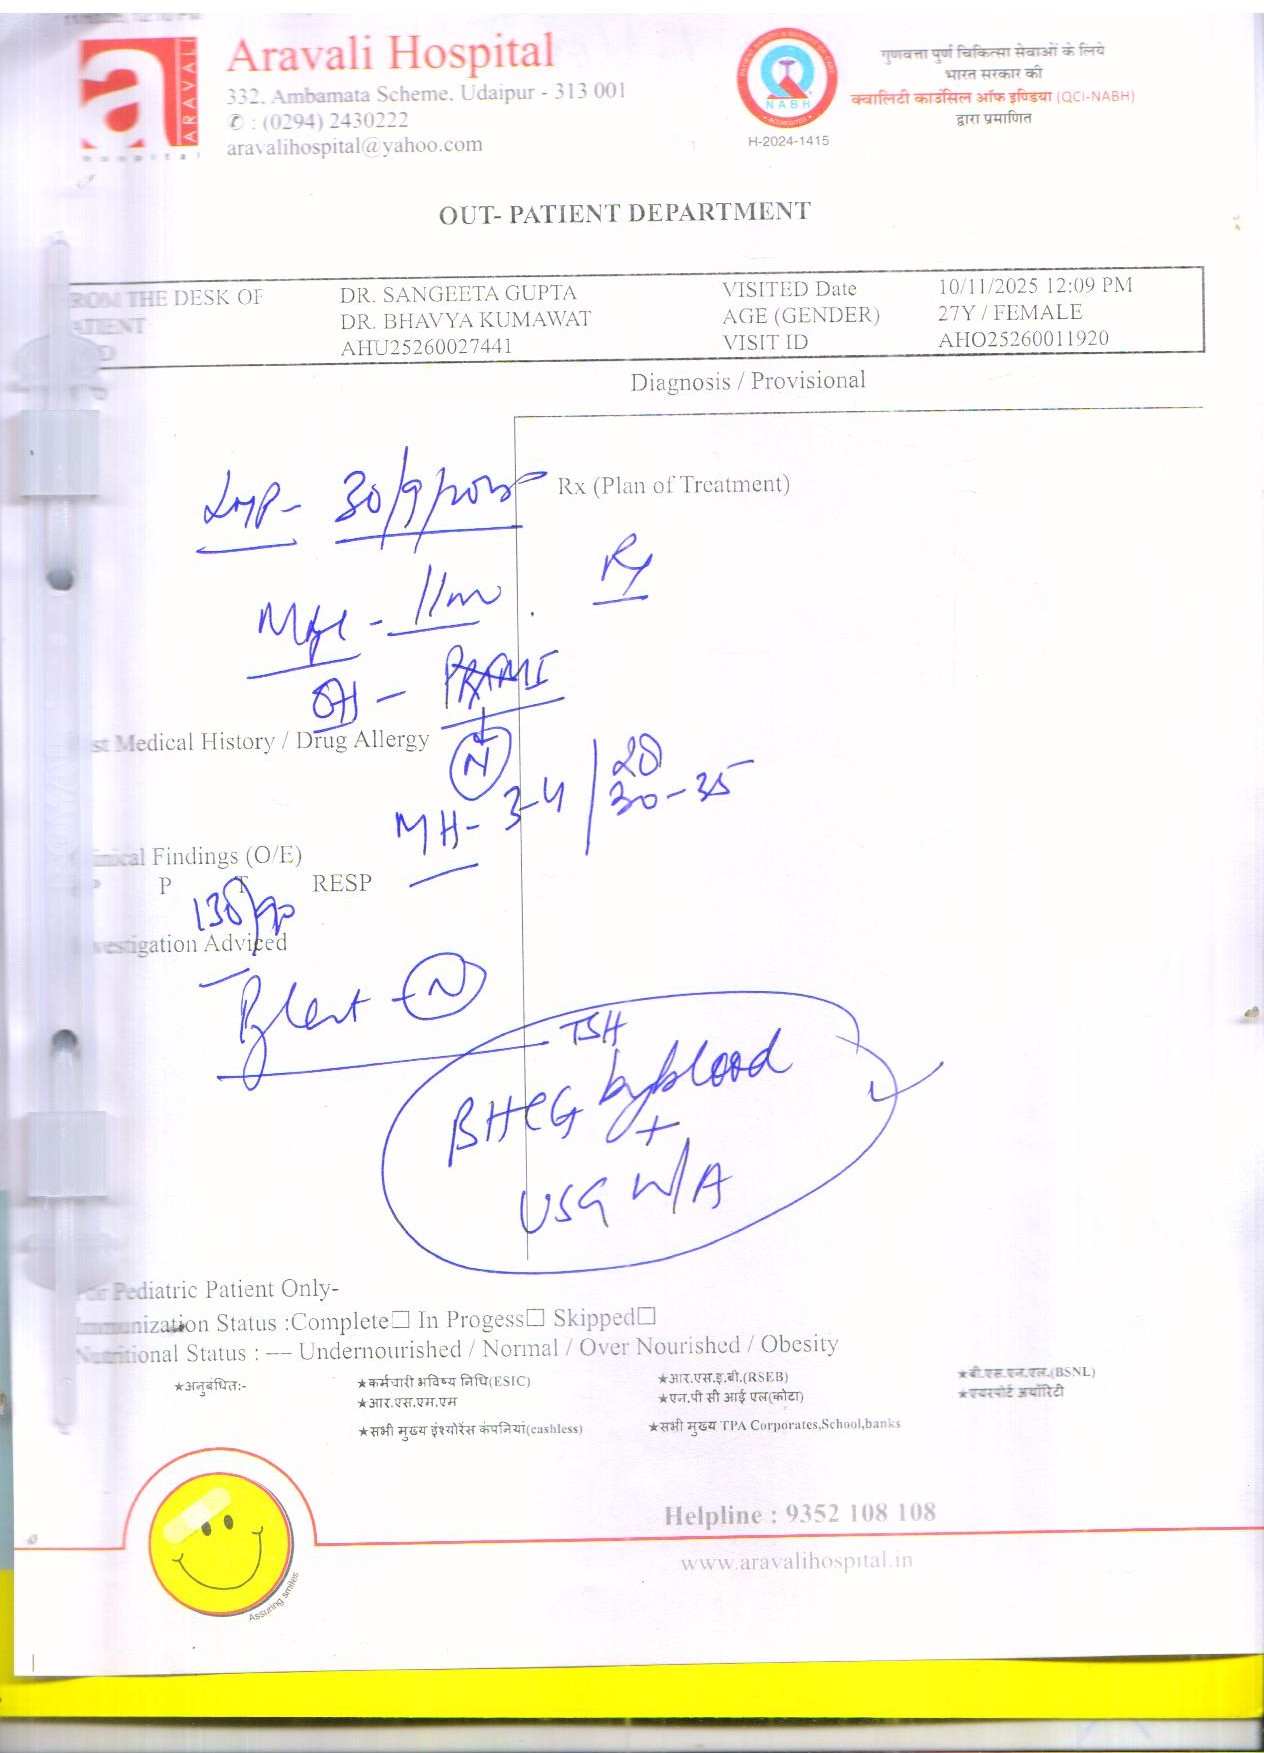 a
ARAVALI
hospital
Aravali Hospital
332, Ambamata Scheme, Udaipur - 313 001
✆ : (0294) 2430222
aravalihospital@yahoo.com
NABH
H-2024-1415
गुणवत्ता पूर्ण चिकित्सा सेवाओं के लिये
भारत सरकार की
क्वालिटी काउंसिल ऑफ इण्डिया (QCI-NABH)
द्वारा प्रमाणित
OUT- PATIENT DEPARTMENT
ROM THE DESK OF DR. SANGEETA GUPTA VISITED Date 10/11/2025 12:09 PM
ATIENT DR. BHAVYA KUMAWAT AGE (GENDER) 27Y / FEMALE
D AHU25260027441 VISIT ID AHO25260011920
Diagnosis / Provisional
LMP - 30/9/2025
Rx (Plan of Treatment)
Rx
11m
OH -
st Medical History / Drug Allergy
N
MH - 3-4 / 28
30-35
inical Findings (O/E)
P T RESP
vestigation Adviced
- N
TSH
BHCG by blood
+
USG W/A
or Pediatric Patient Only-
Immunization Status :Complete☐ In Progess☐ Skipped☐
Nutritional Status : --- Undernourished / Normal / Over Nourished / Obesity
★अनुबंधित:- ★कर्मचारी भविष्य निधि(ESIC) ★आर.एस.इ.बी.(RSEB) ★बी.एस.एन.एल.(BSNL)
★आर.एस.एम.एम ★एन.पी सी आई एल(कोटा) ★एयरपोर्ट अथॉरिटी
★सभी मुख्य इंश्योरेंस कंपनियां(cashless) ★सभी मुख्य TPA Corporates,School,banks
Helpline : 9352 108 108
www.aravalihospital.in
Assuring smiles